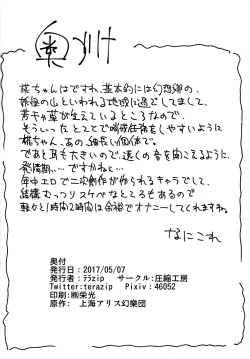 奥付
椛ちゃんはですね、基本的には幻想郷の、
妖怪の山といわれる地域に過ごしてまして、
芳キ草が生えているところなので、
そういったとこで哨戒任務をしやすいように
椛ちゃん、あの 細長い個体で。
であと耳も大きいので、遠くの音を聞こえるように。
発情期… ですかねぇ…
年中エロで二次創作が作られるキャラでして、
結構むっつりスケベなところもあるので
軽々と1時間2時間は余裕でオナニーしてくれますね。
なにこれ
奥付
発行日：2017/05/07
発行者：ﾃﾗzip サークル:圧縮工房
Twitter:terazip Pixiv：46052
印刷:㈱栄光
原作: 上海アリス幻樂団